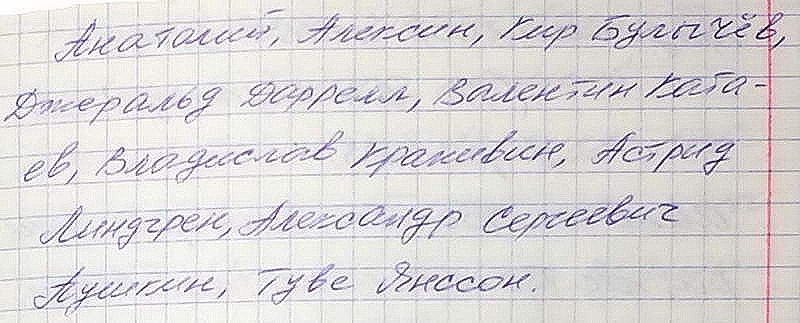 Анатолий, Алексин, Кир Булычёв,
Джеральд Даррелл, Валентин Ката-
ев, Владислав Крапивин, Астрид
Линдгрен, Александр Сергеевич
Пушкин, Туве Янссон.